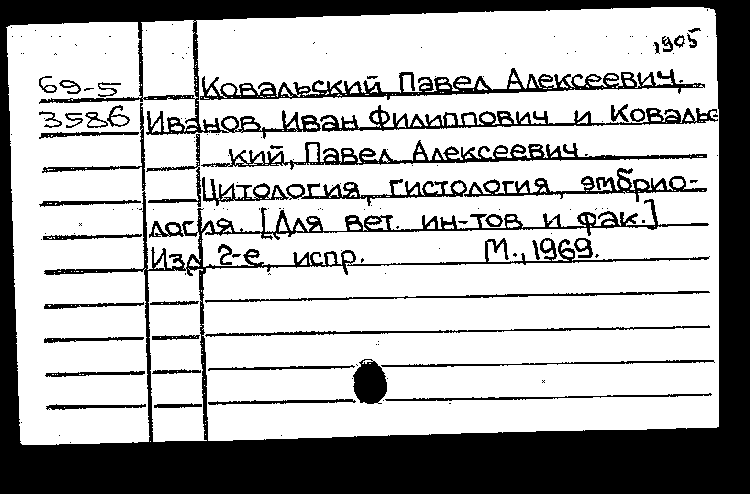 1905
69-5 Ковальский, Павел Алексеевич,
3586 Иванов, Иван Филиппович и Ковальс
кий, Павел Алексеевич.
Цитология, гистология, эмбрио-
логия. [Для вет. ин-тов и фак.]
Изд. 2-е, испр. М., 1969.